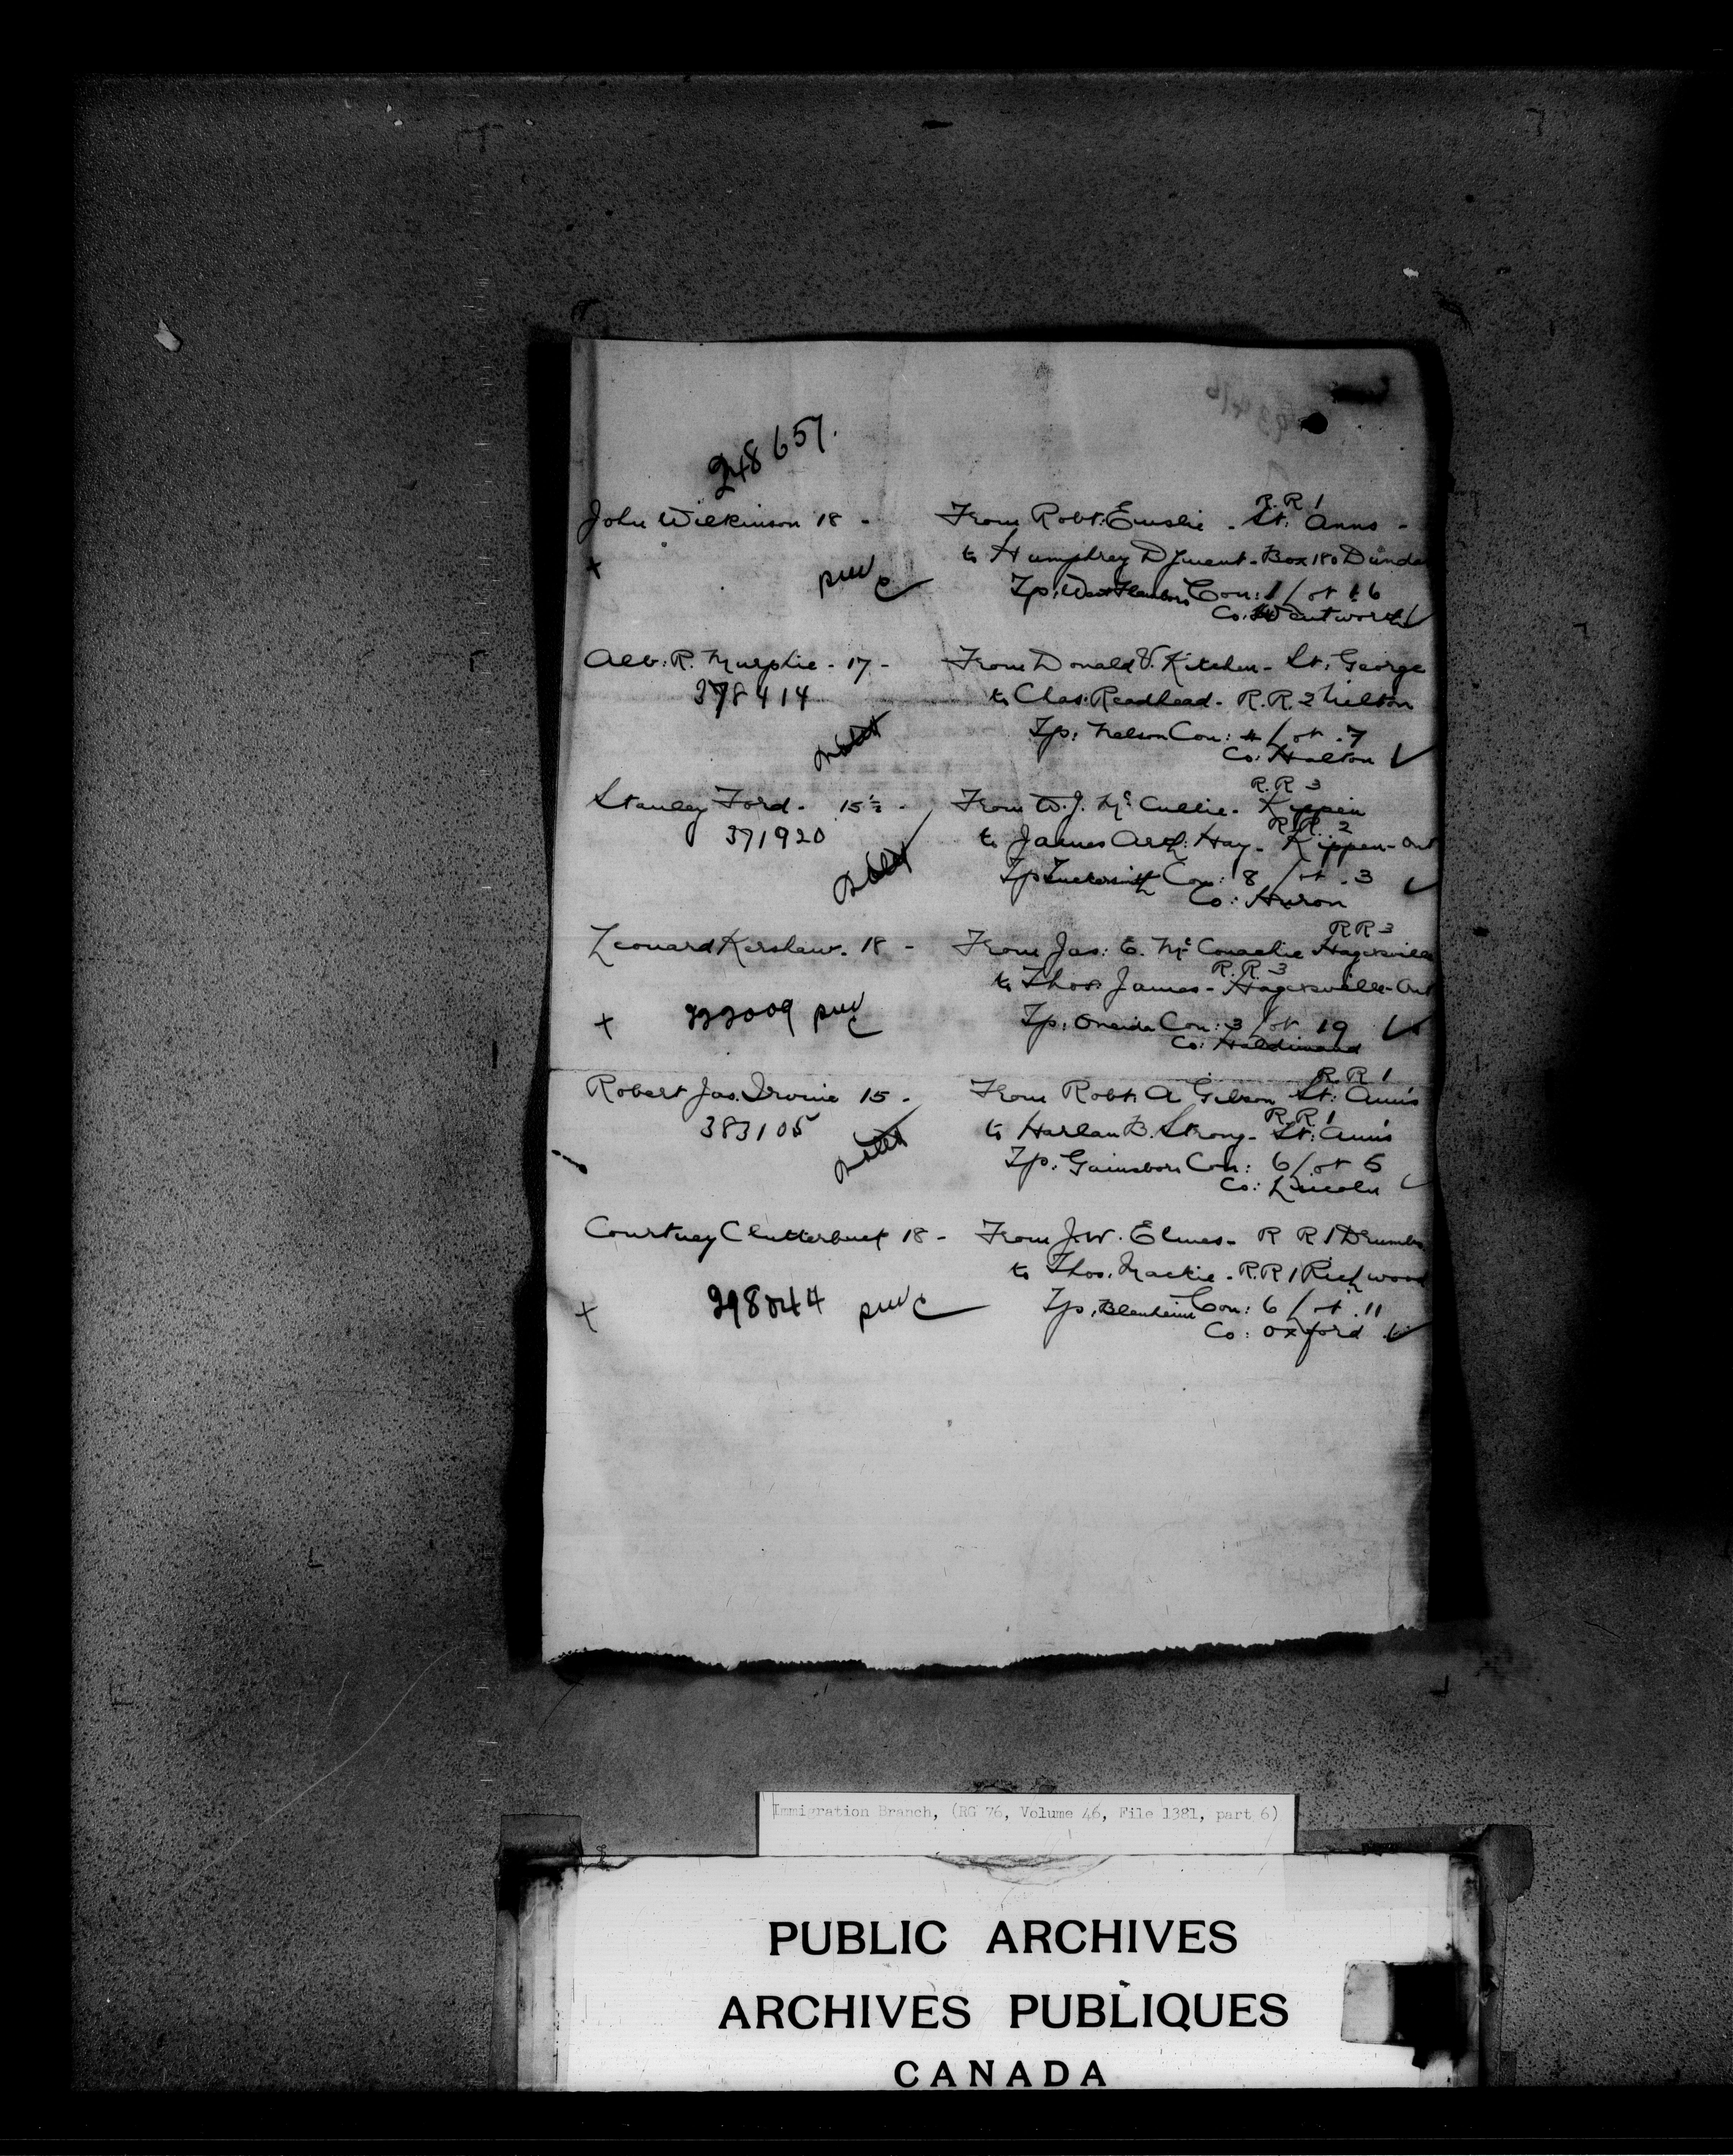 248657.
John Wilkinson 18 - From Robt: Emslie - R.R 1 St: Anns -
+ to Humphrey Dyment - Box 180 Dunda
Tp: West Flamboro Con: 1 / ot 16
Co: Wentworth ✓
Alb: R. Murphie - 17 - From Donald V. Kitchen - St: George
378414 to Chas: Readhead - R.R. 2 Milton
Tp: Nelson Con: 4 / ot .7
Co: Halton ✓
Stanley Ford - 15½ - From W.J. McCullie - R.R 3 Kippen
371920 to James Arch: Hay - R.R. 2 Kippen - Ont
Tp Tuckersmith Con: 8 / ot .3 ✓
Co: Huron
Leonard Kershaw. 18 - From Jas: E. McConachie RR 3 Hagersville
to Thos James - R.R. 3 Hagersville - Ont
+ 222009 Tp: Oneida Con: 3 / ot 19 ✓
Co: Haldimand
Robert Jas. Irvine 15 - From Robt. A Gibson R.R 1 St: Ann's
383105 to Harlan B. Strong - R.R 1 St: Ann's
Tp: Gainsboro Con: 6 / ot 5 ✓
Co: Lincoln
Courtney Clutterbuck 18 - From J.W. Elmes - R R 1 Drumbo
to Thos. Mackie - R.R 1 Richwood
+ 298044 Tp: Blenheim Con: 6 / ot .11
Co: Oxford ✓
Immigration Branch, (RG 76, Volume 46, File 1381, part 6)
PUBLIC ARCHIVES
ARCHIVES PUBLIQUES
CANADA